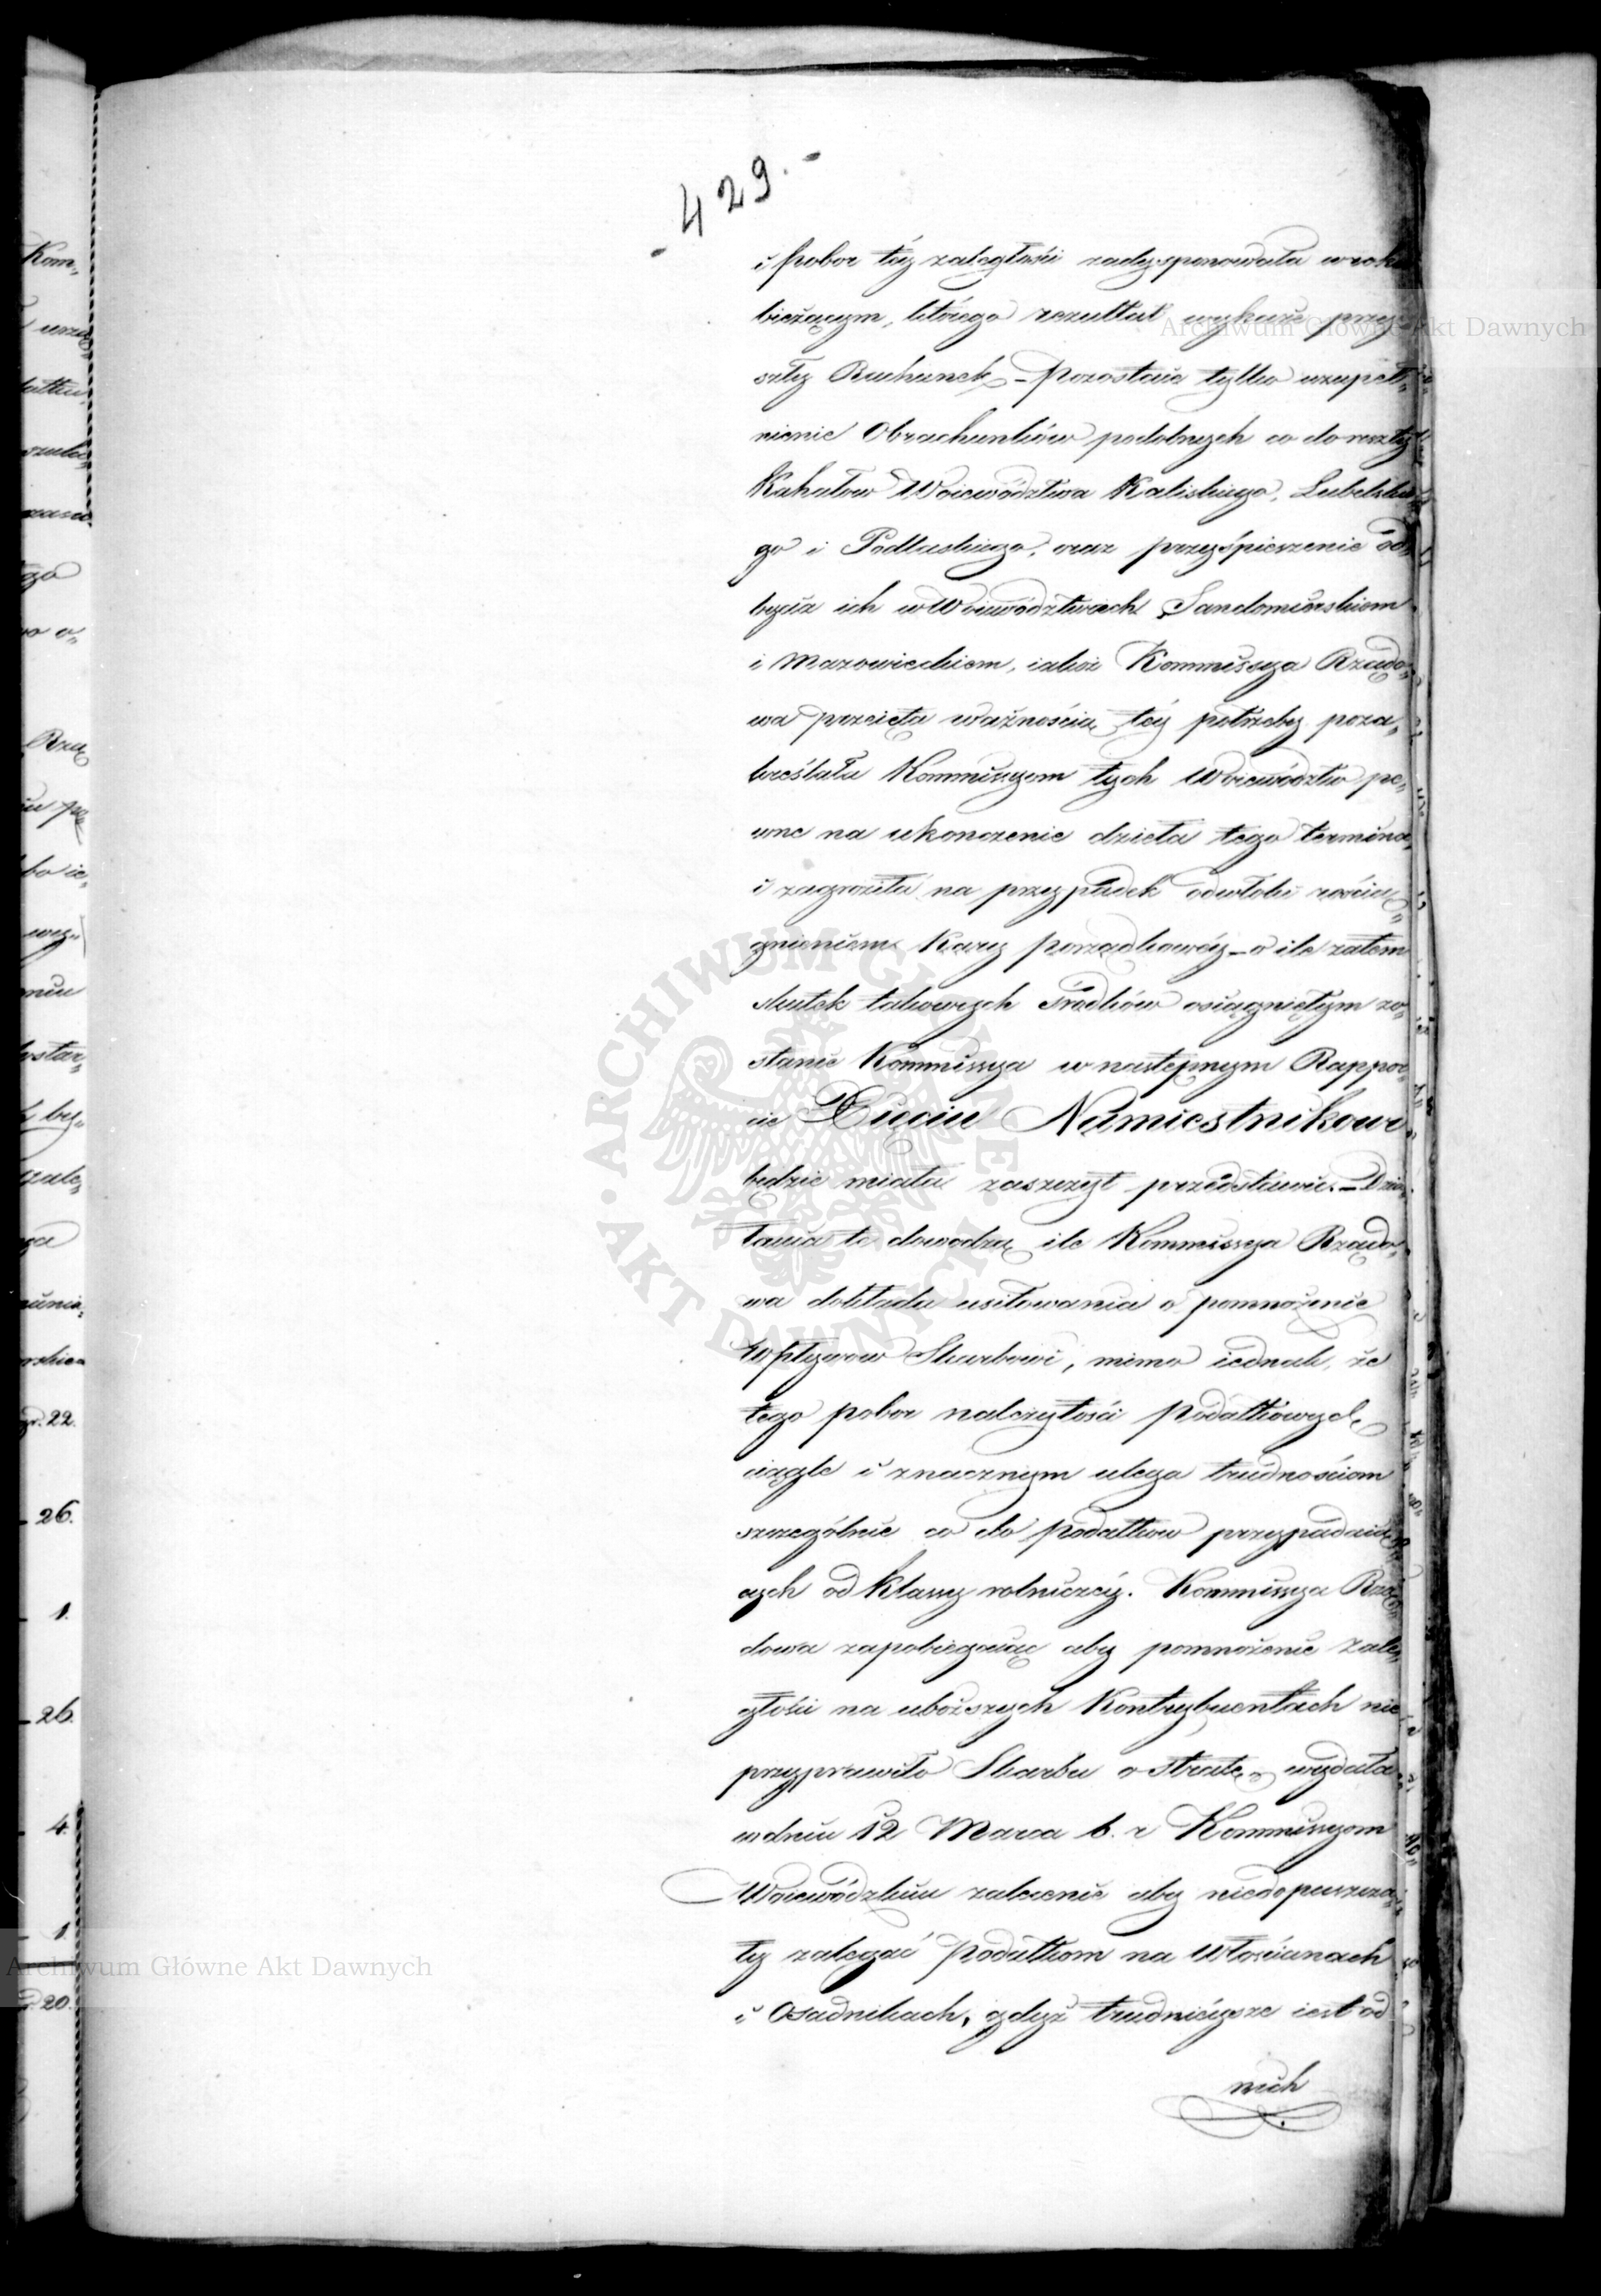 - 429. -
i pobor téy zaległości zadysponowała w roku
bieżącym, którego rezultat wykaże przy-
szły Rachunek – Pozostaie tylko uzupeł-
nienie Obrachunków podobnych co do reszty
Kahałow Woiewództwa Kaliskiego, Lubelskie-
go i Podlaskiego, oraz przyśpieszenie od-
bycia ich w Woiewództwach Sandomirskiem
i Mazowieckiem, iakoż Kommissya Rządo-
wa przeięta ważnością téy potrzeby poza-
kreślała Kommissyom tych Woiewództw pe-
wne na ukonczenie dzieła tego termina,
i zagroziła na przypadek odwłoki rością-
gnieniem Kary porządkowéy – o ile zatem
skutek takowych środków osiągniętym zo-
stanie Kommissya w następnym Rappor-
cie Xięciu Namiestnikowi
będzie miała zaszczyt przedstawić. – Dzia-
łania te dowodzą ile Kommissya Rządo-
wa dokłada usiłowania o pomnożenie
Wpływow Skarbowi, mimo iednak, że
tego pobor należytości podatkowych
ciągle i znacznym ulega trudnościom
szczególnie co do podatkow przypadaią-
cych od klassy rolniczéy. Kommissya Rzą-
dowa zapobiegaiąc aby pomnożenie zale-
głości na uboższych Kontrybuentach nie
przyprawiło Skarbu o stratę, wydała
w dniu 12 Marca b. r Kommissyom
Woiewódzkim zalecenie aby niedopuszcza-
ły zalegać Podatkom na Włościanach
i Osadnikach, gdyż trudniéysze iest od
nich
Kom-
go
26.
1.
26.
4.
1.
20.
Archiwum Główne Akt Dawnych
Archiwum Główne Akt Dawnych
ARCHIWUM GŁÓWNE AKT DAWNYCH